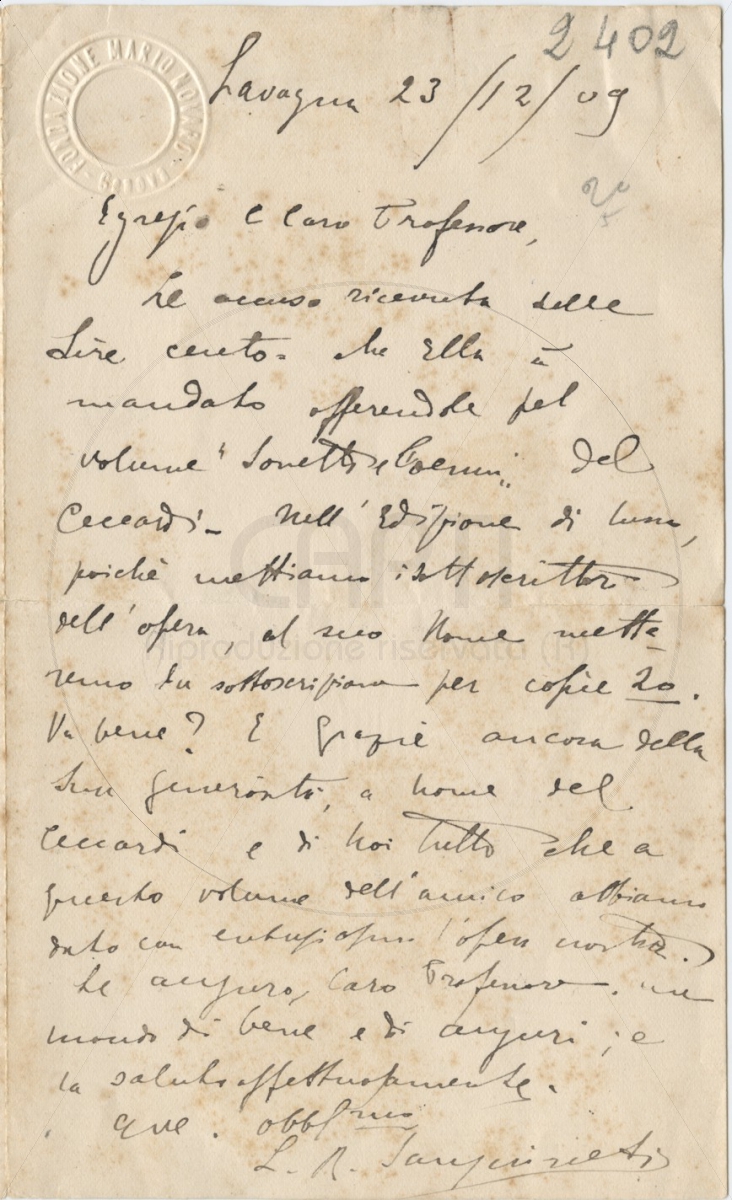 2402
FONDAZIONE MARIO NOVARO
Lavagna 23/12/09
Egregio e Caro Professore,
Le accuso ricevuta delle
Lire cento - che Ella à
mandato offerendole pel
volume "Sonetti e Poemi" del
Ceccardi - Nell'Edizione di lusso,
poichè mettiamo i sottoscrittori
dell'opera, al suo Nome mette-
remo la sottoscrizione per copie 20.
Va bene? E grazie ancora della
Sua generosità, a nome del
Ceccardi e di noi tutti che a
questo volume dell'amico abbiamo
dato con entusiasmo l'opera nostra.
Le auguro, caro Professore, un
mondo di bene e di auguri; e
la saluto affettuosamente.
obblmo
L. R. Sanguineti
CARM
Riproduzione riservata (R)